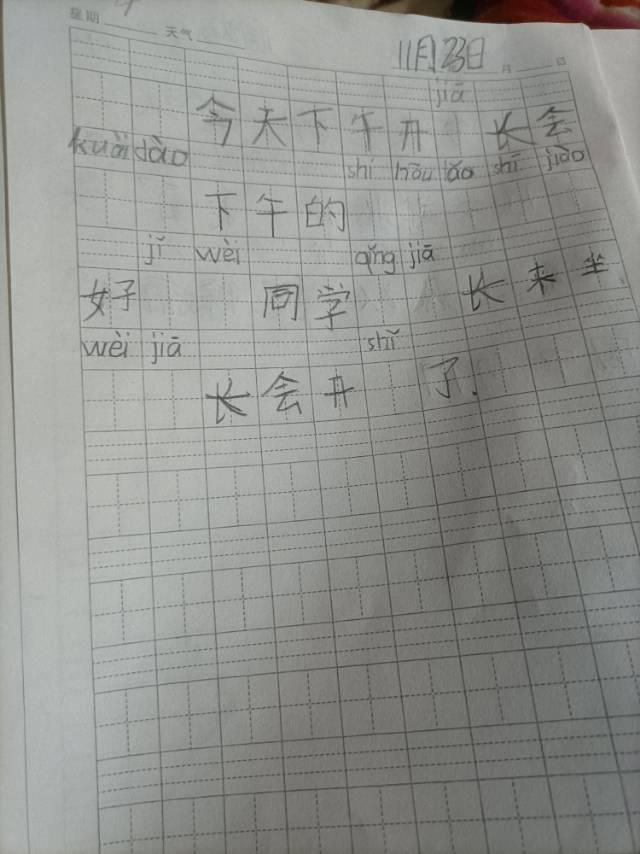 星期 天气
11月23日 月 日
jiā
今天下午开 长会
kuài dào shí hōu lǎo shī jiào
下午的
jǐ wèi qǐng jiā
好 同学 长来坐
wèi jiā shǐ
长会开 了.